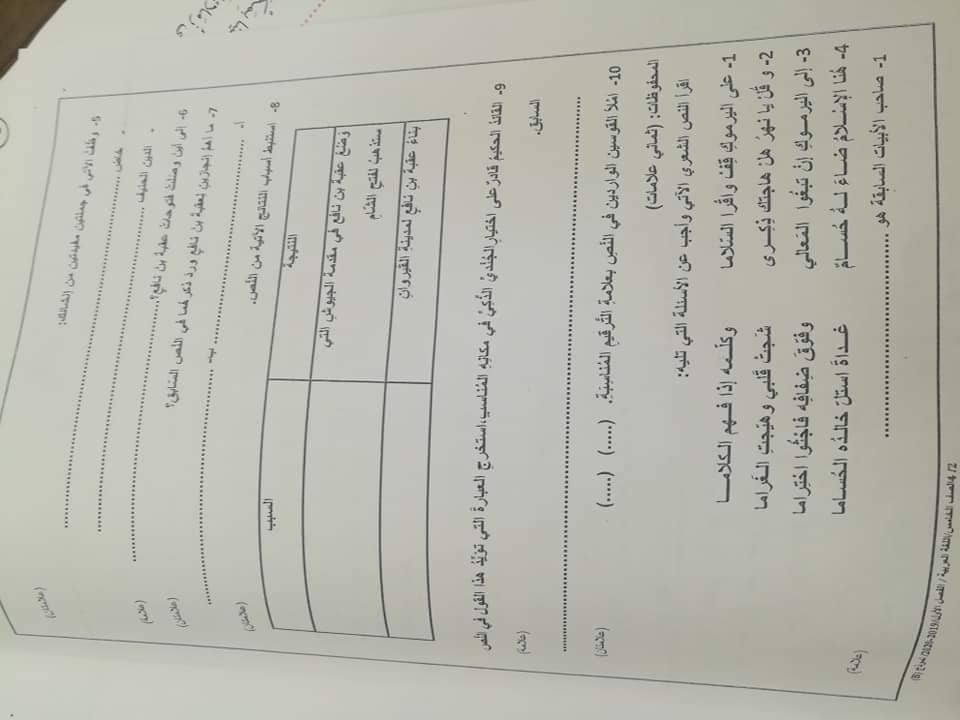 5- وظف الآتي في جملتين مفيدتين من إنشائك: (علامتان)
- خاض ............................................................
- الدين الحنيف ............................................................
6- إلى أين وصلت فتوحات عقبة بن نافع؟ ............................................................ (علامة)
7- ما أهم إنجازين لعقبة بن نافع ورد ذكرهما في النص السابق؟ (علامتان)
أ- ............................................................ ب- ............................................................
8- استنبط أسباب النتائج الآتية من النص. (علامتان)
النتيجة السبب
وضع عقبة بن نافع في مقدمة الجيوش التي
ستذهب لفتح الشام
بناء عقبة بن نافع لمدينة القيروان
9- القائد الحكيم قادر على اختيار الجندي الذكي في مكانه المناسب، استخرج العبارة التي تؤيد هذا القول في النص
السابق. (علامة)
............................................................
10- املأ القوسين الواردين في النص بعلامة الترقيم المناسبة. (.....) (.....) (علامتان)
المحفوظات: (ثماني علامات)
اقرأ النص الشعري الآتي وأجب عن الأسئلة التي تليه:
1- على اليرموك قف واقرا السلاما وكلمه إذا فهم الكلاما
2- و قل يا نهر هل هاجتك ذكرى شجت قلبي وهيجت الغراما
3- إلى اليرموك إن تبغوا المعالي وفوق ضفافه فاجثوا احتراما
4- هنا الإسلام ضاء له حسام غداة استل خالده الحساما
1- صاحب الأبيات السابقة هو ............................................................ (علامة)
4/2 الصف الخامس/اللغة العربية / الفصل الأول/2019-2020/ نموذج (B)